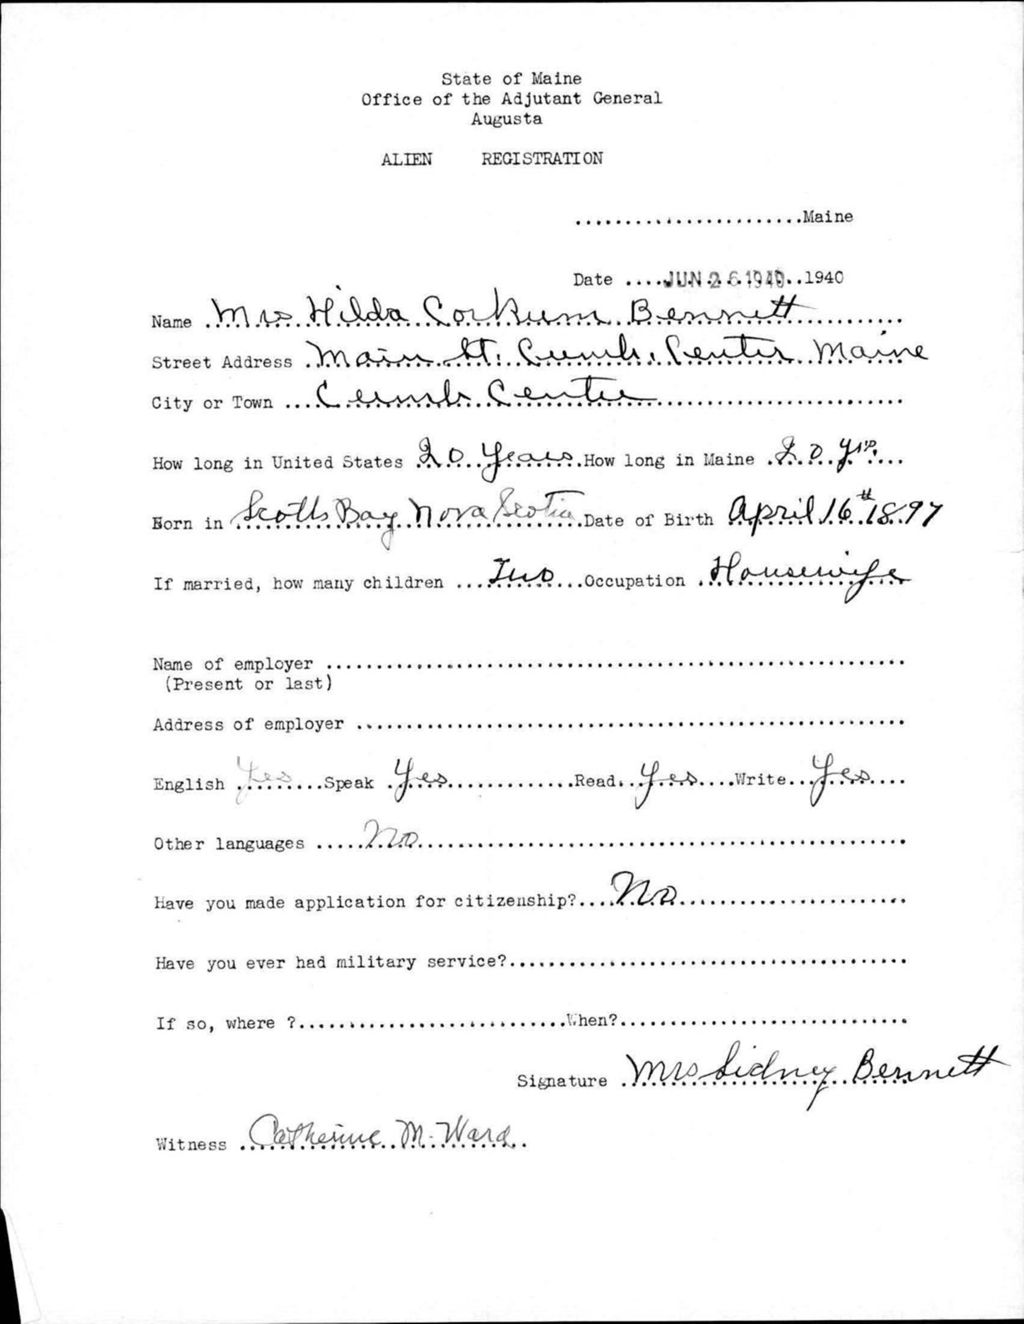 State of Maine
Office of the Adjutant General
Augusta
ALIEN REGISTRATION
.......................Maine
Date ....JUN 26 1940..1940
Name Mrs Hilda Corkum Bennett
Street Address Main St. Cumb. Center Maine
City or Town Cumb Center
How long in United States 20 years How long in Maine 20 yrs.
Born in Scotts Bay Nova Scotia Date of Birth April 16th 1897
If married, how many children Two Occupation Housewife
Name of employer
(Present or last)
Address of employer
English Yes Speak Yes Read Yes Write Yes
Other languages No
Have you made application for citizenship? No
Have you ever had military service?
If so, where ? When?
Signature Mrs Sidney Bennett
Witness Catherine M. Ward